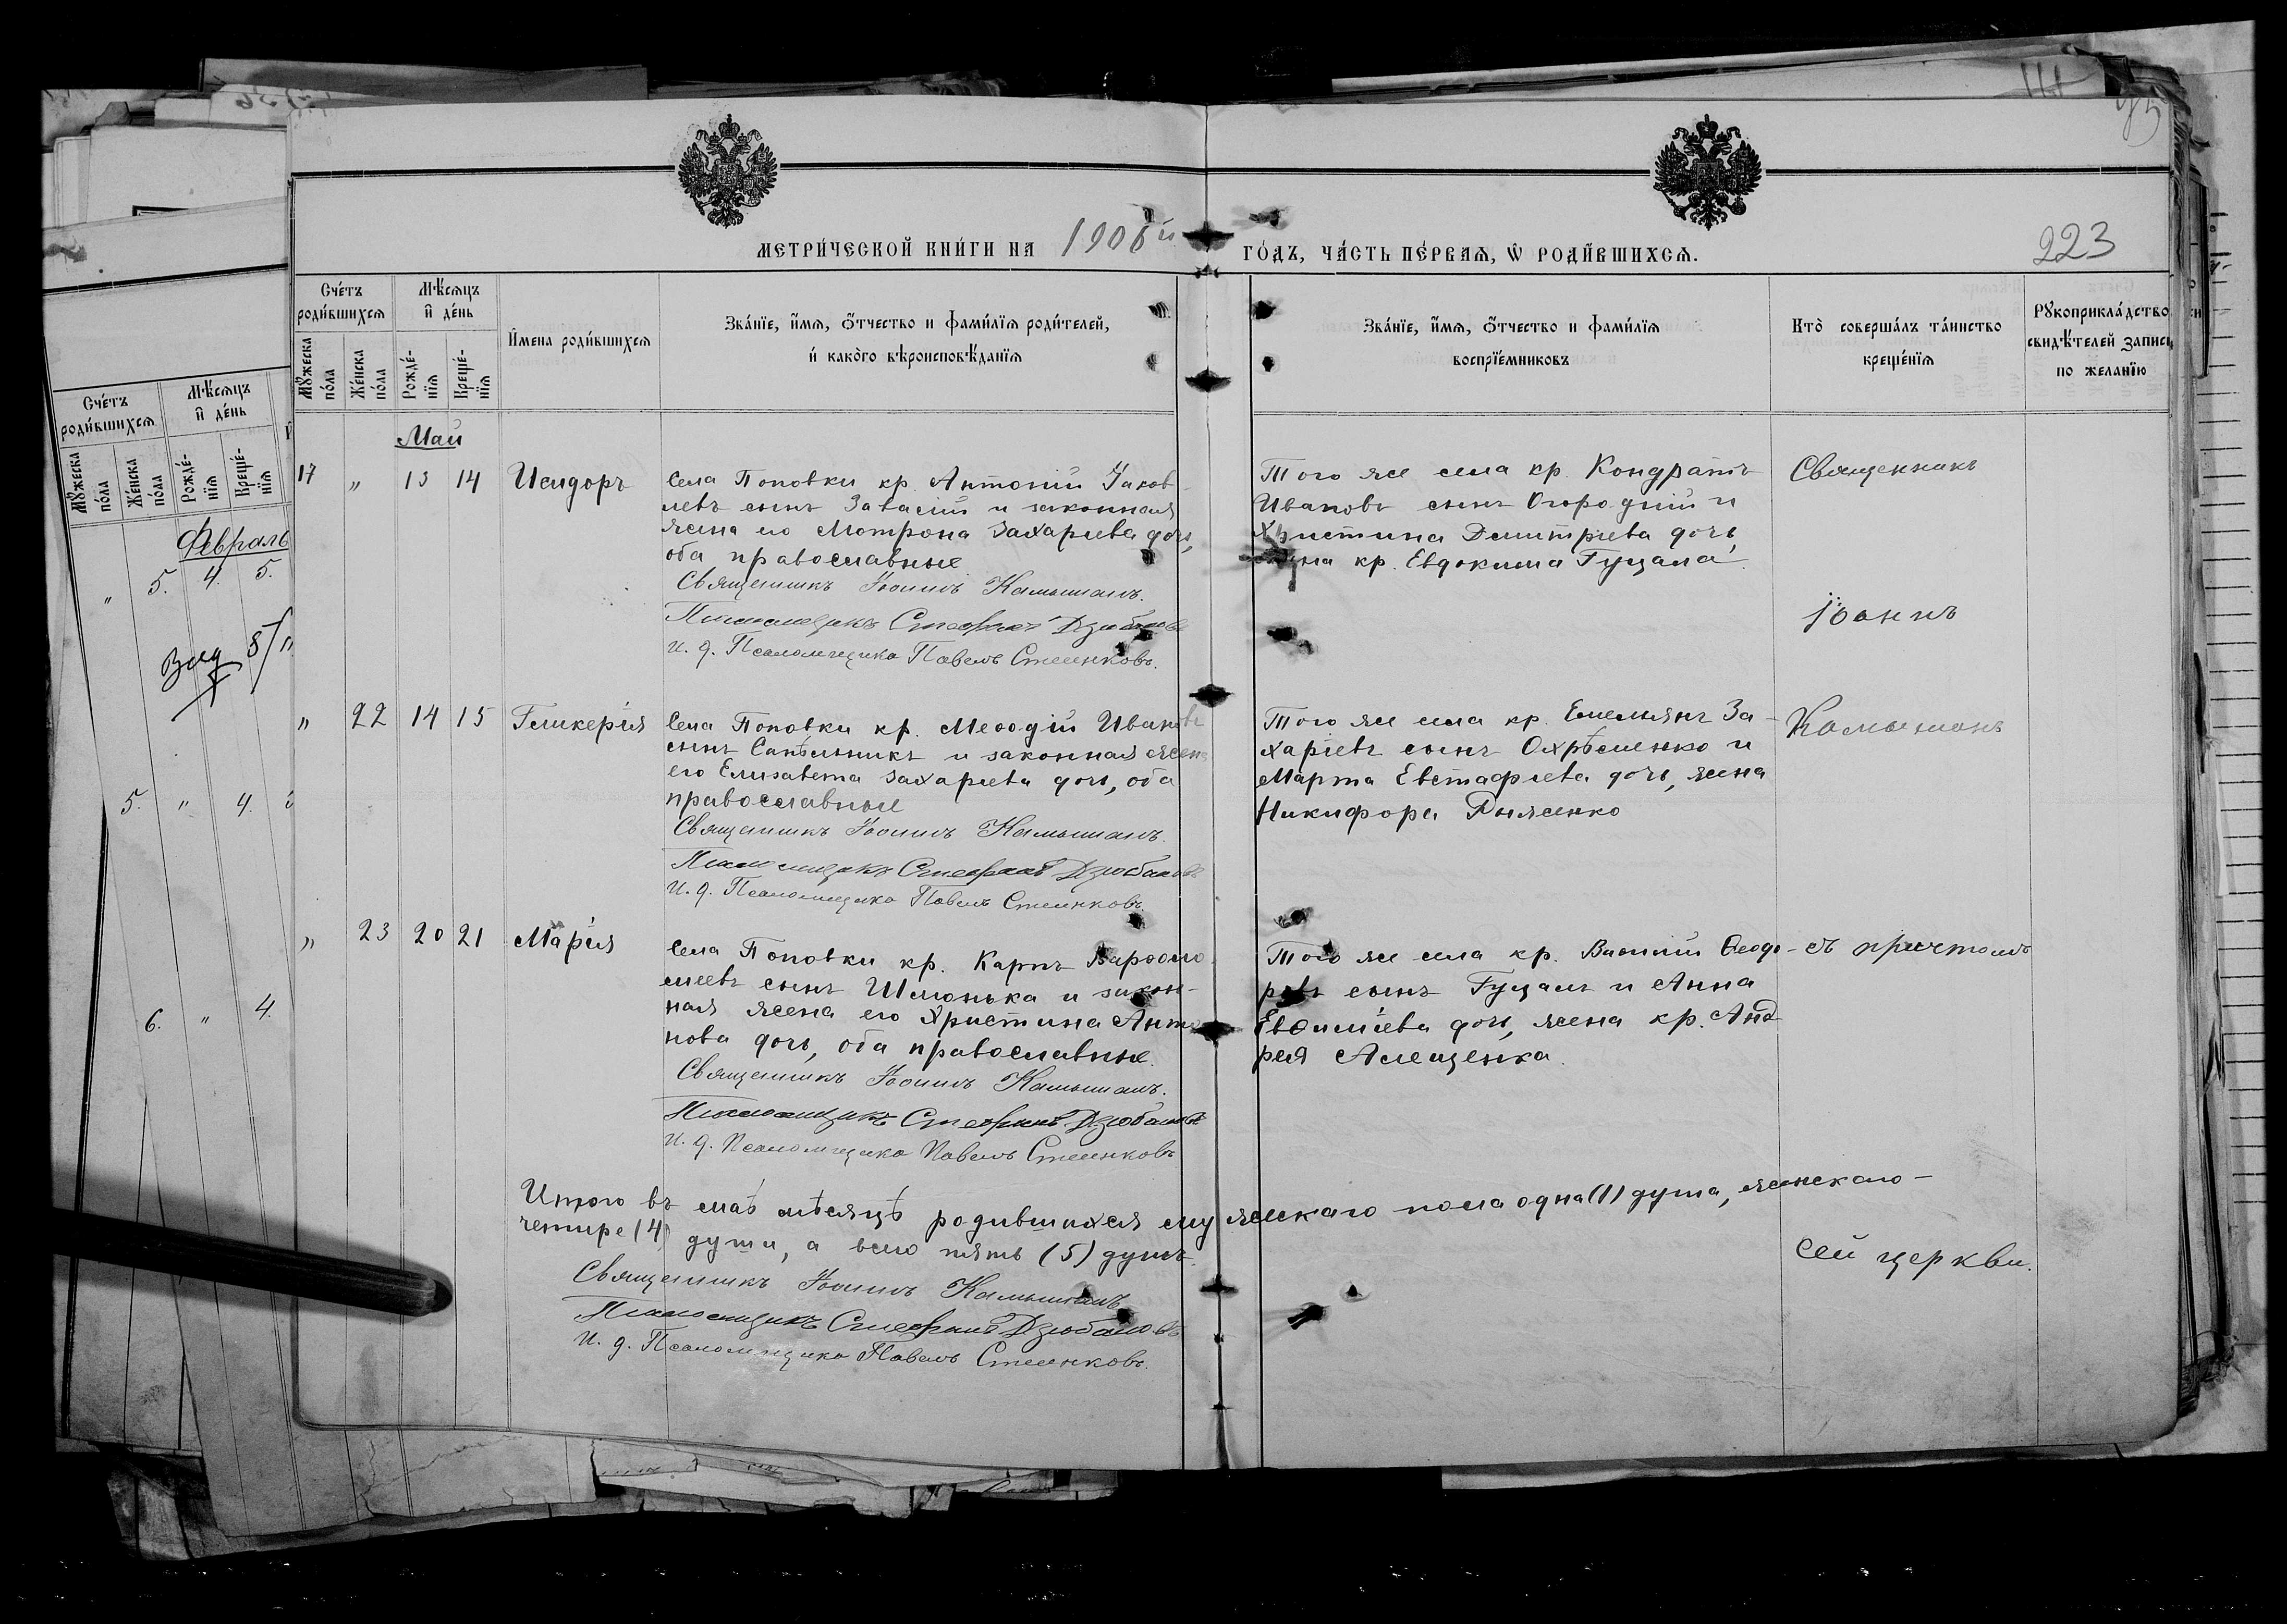 МЕТРИ́ЧЕСКОЙ КНИ́ГИ НА 1908 й ГО́ДЪ, ЧА́СТЬ ПЕ́РВАЯ, Ѡ РОДИ́ВШИХСЯ.
223
Сче́тъ роди́вшихся
Мѣ́сяцъ и҆ де́нь
И҆мена роди́вшихся
Зва́нїе, и҆́мя, ѻ҆́тчество и фами́лїя роди́телей,
и҆ како́го вѣроисповѣ́данїя
Зва́нїе, и҆́мя, ѻ҆́тчество и фами́лїя
воспрїе́мниковъ
Кто̀ соверша́лъ та́инство
креще́нїя
Рꙋкоприкла́дство
свидѣ́телей записи
по жела́нїю
Мꙋ́жеска по́ла
Же́нска по́ла
Рожде́нїя
Креще́нїя
Май
17 " 13 14 Исидоръ
Села Поповки кр. Антоній Іаков-
левъ сынъ Завалій и законная
жена его Мотрона Захаріева дочь,
оба православные
Священникъ Іоаннъ Камышанъ.
Псаломщикъ Стефанъ Дзюбановъ
И. д. Псаломщика Павелъ Стеенковъ.
Того же села кр. Кондратъ
Ивановъ сынъ Огородній и
Христина Димитріева дочь
жена кр. Евдокима Гуцала.
Священникъ
Іоаннъ
Камышанъ
съ причтомъ
сей церкви.
" 22 14 15 Гликерія
Села Поповки кр. Меѳодій Ивановъ
сынъ Сапѣльникъ и законная жена
его Елизавета Захаріева дочь, оба
православные
Священникъ Іоаннъ Камышанъ.
Псаломщикъ Стефанъ Дзюбановъ
И. д. Псаломщика Павелъ Стеенковъ.
Того же села кр. Емельянъ За-
харіевъ сынъ Охрѣменко и
Марта Евстафіева дочь, жена
Никифора Рыженко
" 23 20 21 Марія
Села Поповки кр. Карпъ Варѳоло-
меевъ сынъ Шмонька и закон-
ная жена его Христина Анто-
нова дочь, оба православные.
Священникъ Іоаннъ Камышанъ.
Псаломщикъ Стефанъ Дзюбановъ
И. д. Псаломщика Павелъ Стеенковъ
Того же села кр. Василій Ѳеодо-
ровъ сынъ Гуцалъ и Анна
Евѳиміева дочь, жена кр. Анд
рея Алещенка.
Итого въ маѣ мѣсяцѣ родившихся мужескаго пола одна (1) душа, женскаго –
четыре (4) души, а всего пять (5) душъ.
Священникъ Іоаннъ Камышанъ
Псаломщикъ Стефанъ Дзюбановъ
И. д. Псаломщика Павелъ Стеенковъ.
Сче́тъ
роди́вшихся
Мѣ́сяцъ
и҆ де́нь
Мꙋ́жеска по́ла
Же́нска по́ла
Рожде́нїя
Креще́нїя
Февраль
" 5. 4 5.
5. " 4.
6. " 4.